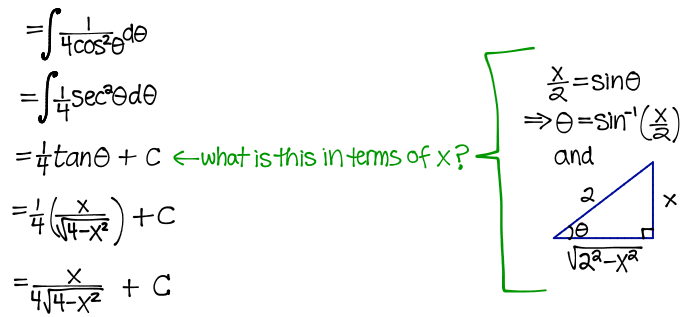 =∫ 1/(4cos²θ) dθ
=∫ 1/4 sec²θdθ
=1/4 tanθ + C ← what is this in terms of x?
=1/4 (x/√(4-x²)) + C
=x/(4√(4-x²)) + C
x/2 = sinθ
⇒ θ = sin⁻¹(x/2)
and
2
x
θ
√(2²-x²)